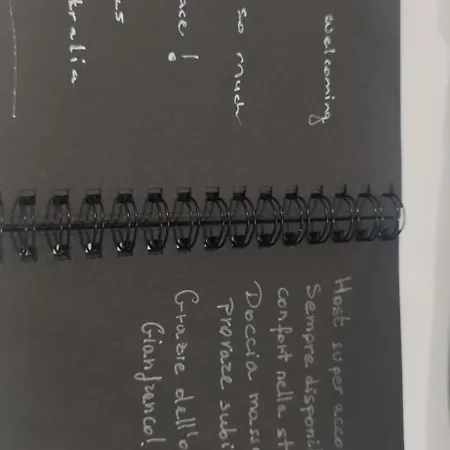 welcoming
so much
ace !
ralia
Host super acco
Sempre disponi
confort nella st
Doccia mass
Provare subi
Grazie dell'
Gianfranco!